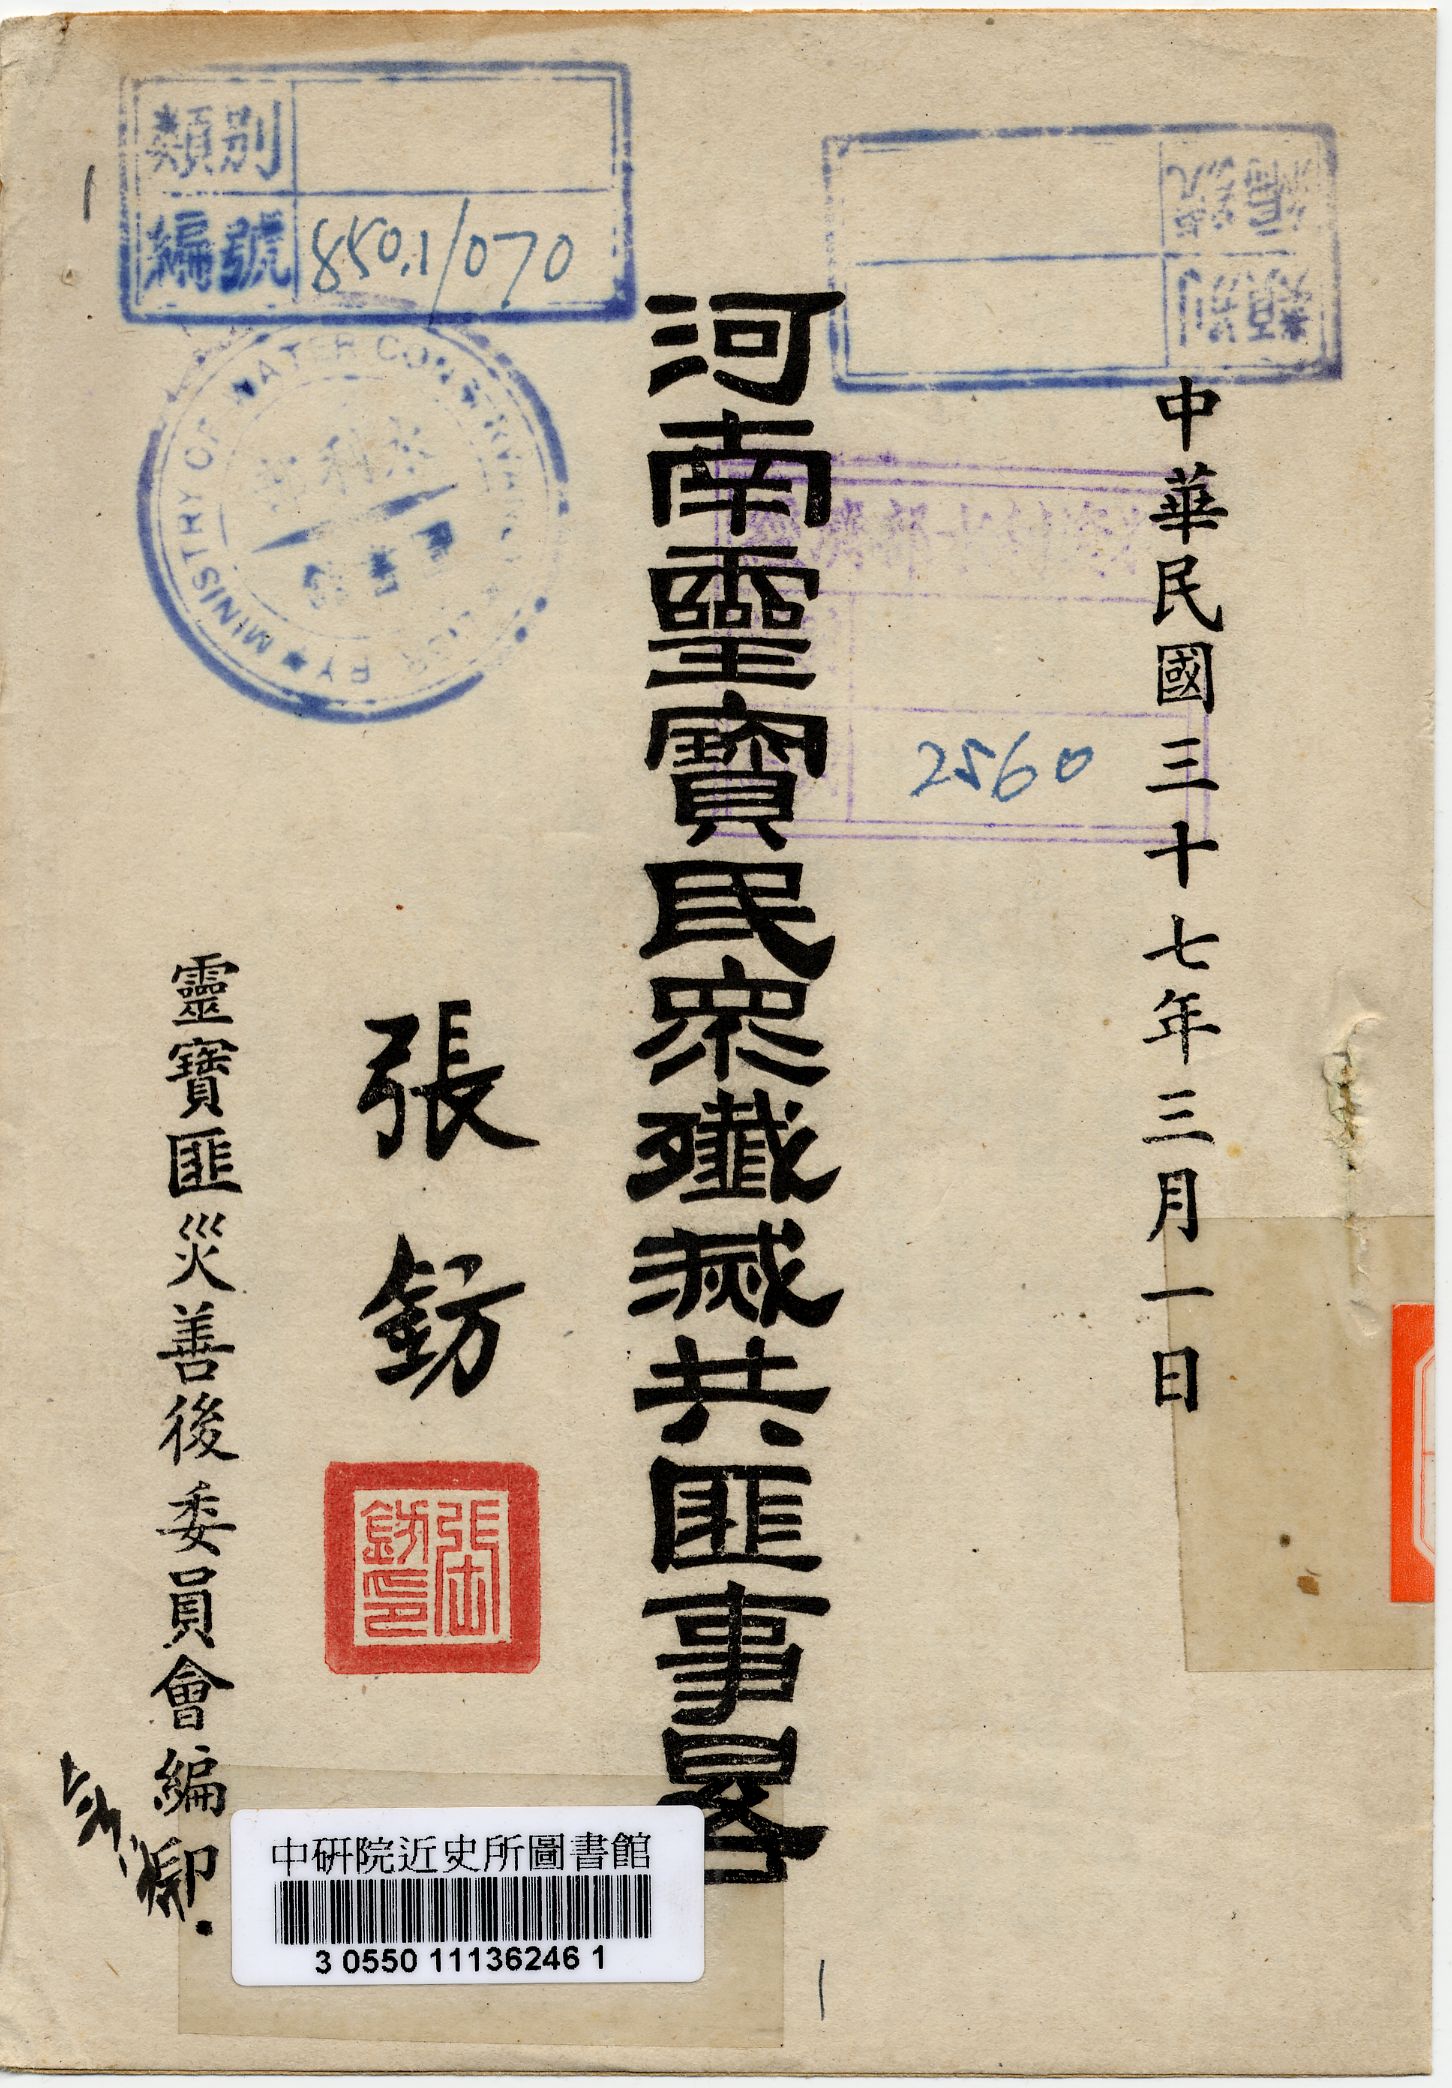 類別
編號 850.1/070
編號
類別
中華民國三十七年三月一日
2560
河南靈寶民眾殲滅共匪事畧
張鈁
張鈁印
靈寶匪災善後委員會編印
MINISTRY OF WATER CONSERVANCY
水利部
BY
中研院近史所圖書館
3 0550 11136246 1